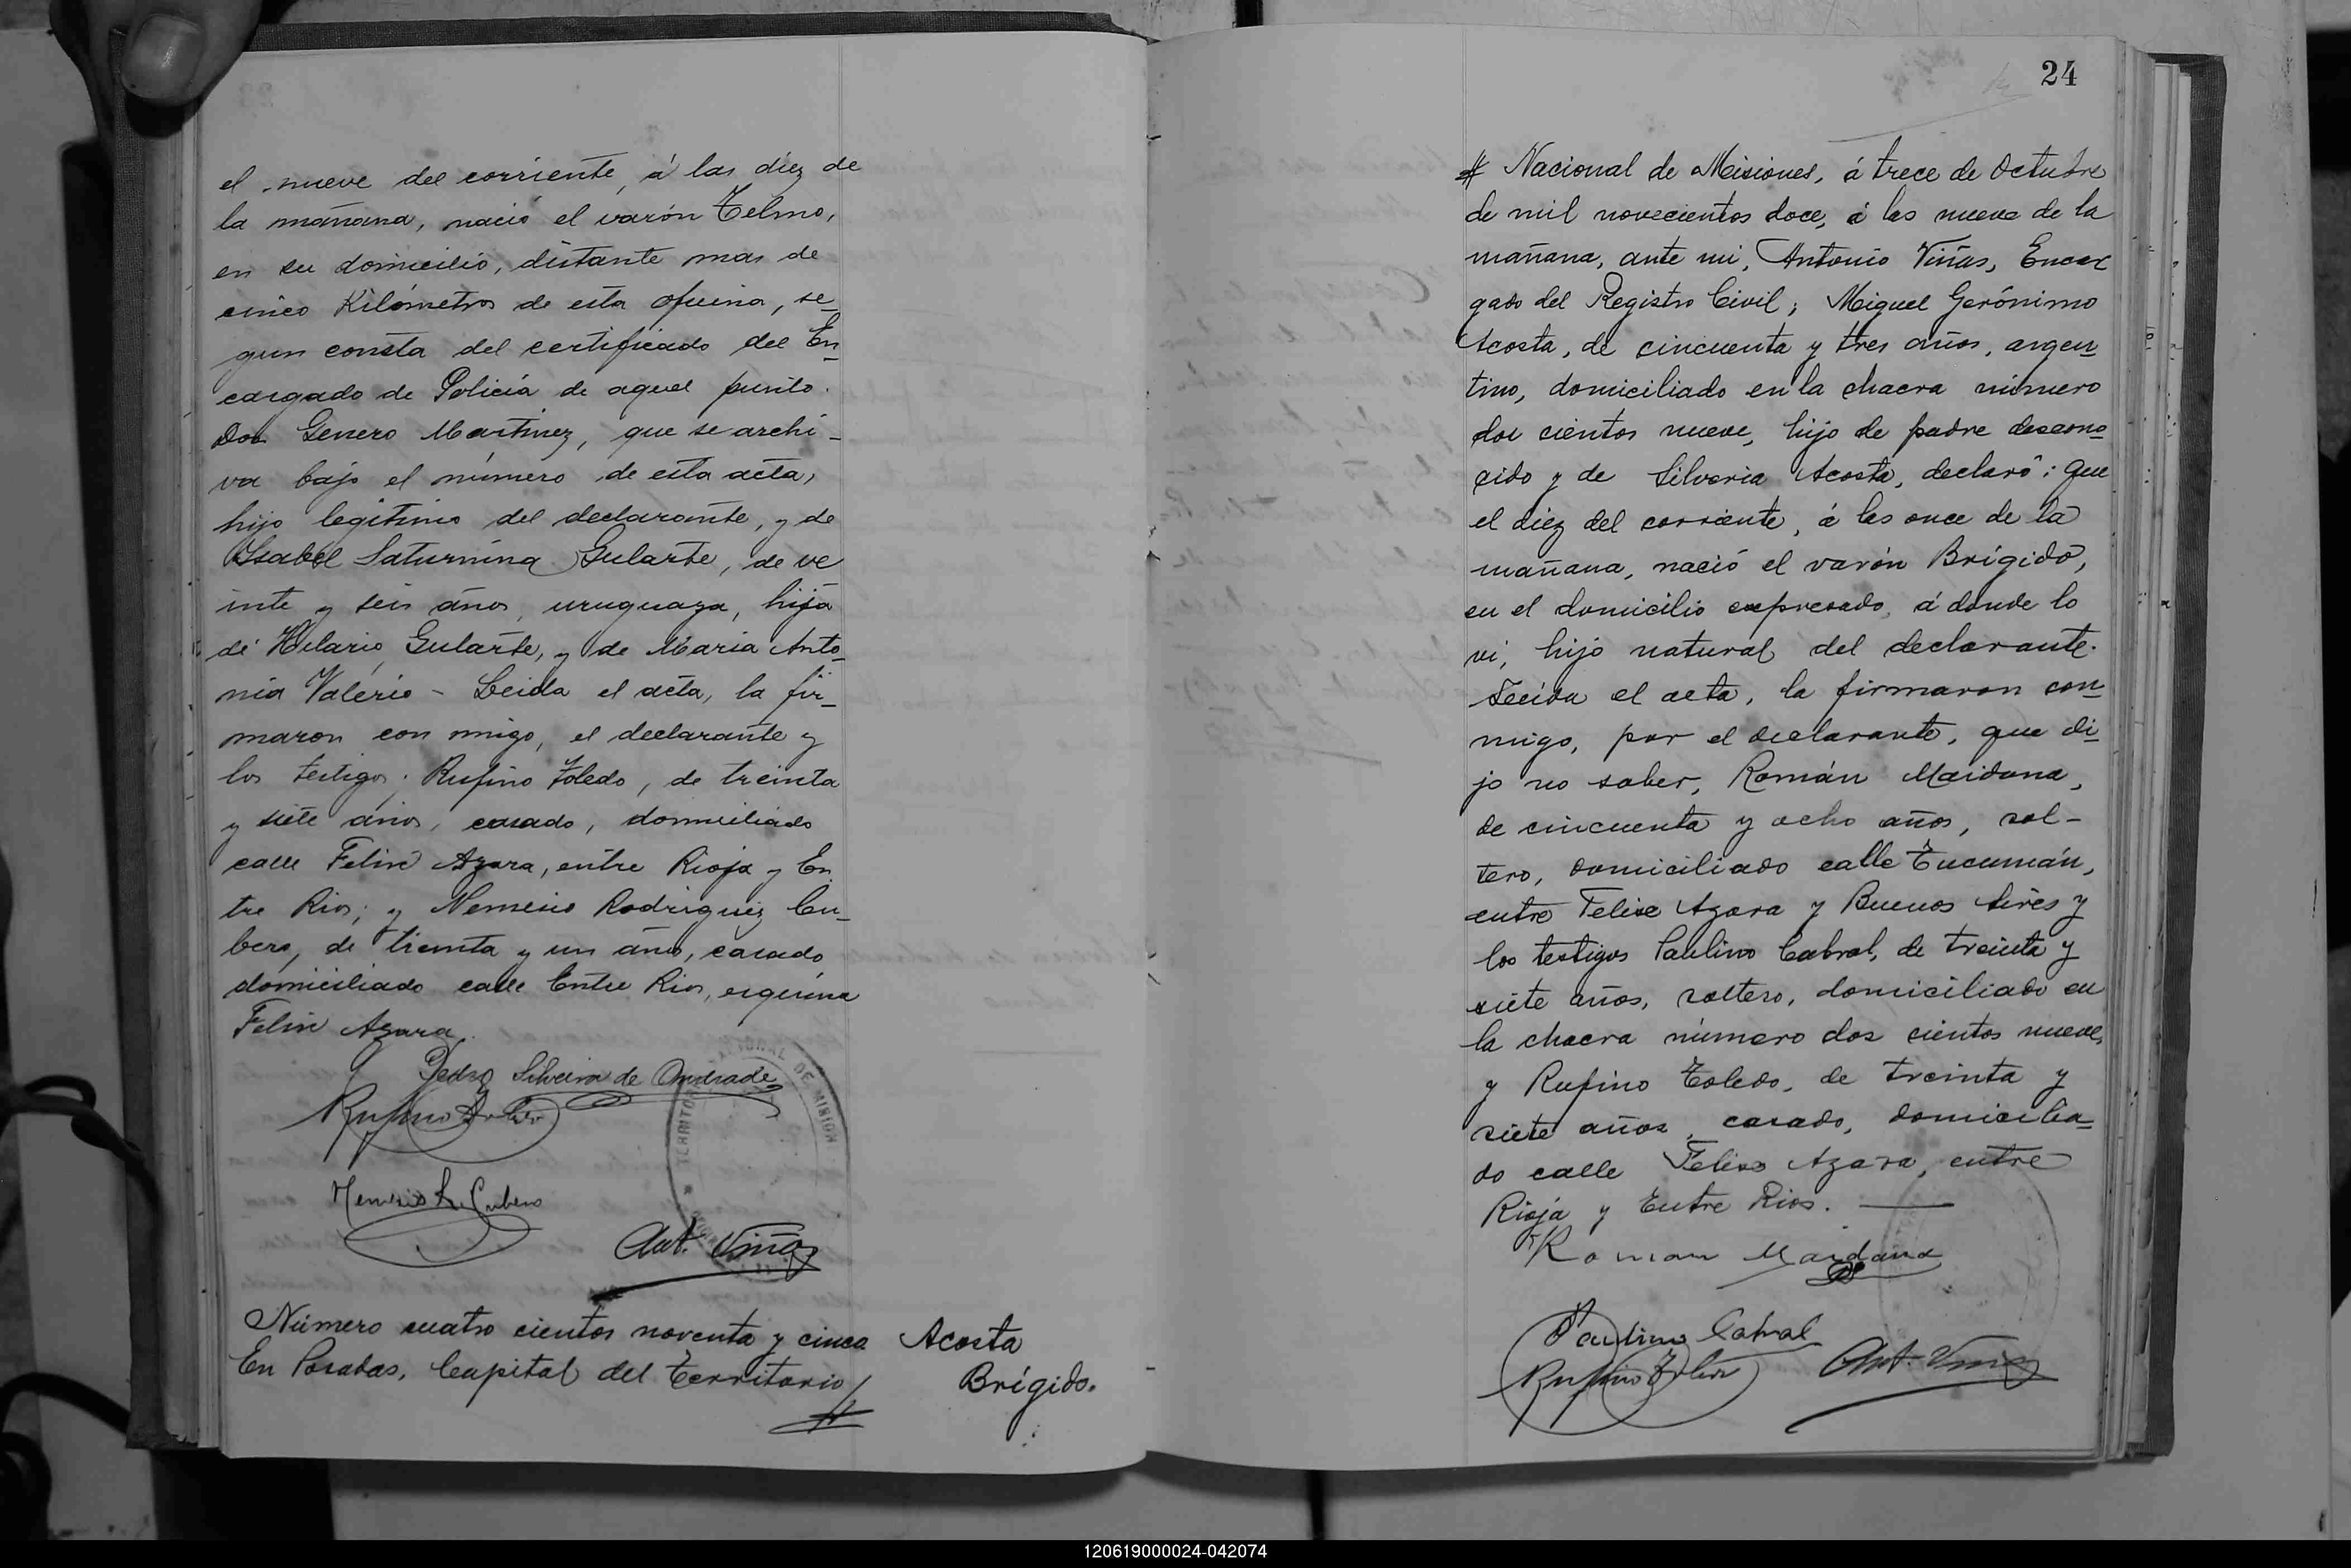 el nueve del corriente, á las diez de
la mañana, nació el varón Telmo,
en su domicilio, distante mas de
cinco Kilómetros de esta oficina, se-
gun consta del certificado del En-
cargado de Policía de aquel punto
Don Genero Martinez, que se archi-
va bajo el número de esta acta,
hijo legítimo del declarante, y de
Isabel Saturnina Gularte, de ve
inte y seis años, uruguaya, hija
de Hilario Gularte, y de María Anto-
nia Valerio - Leida el acta, la fir-
maron con migo, el declarante y
los testigos: Rufino Toledo, de treinta
y siete años, casado, domiciliado
calle Felix Azara, entre Rioja y En
tre Rios; y Nemesio Rodriguez Cu-
bero, de treinta y un año, casado,
domiciliado calle Entre Rios, esquina
Felix Azara.
Pedro Silveira de Andrade
Rufino Toledo
Nemesio R. Cubero
TERRITORIO NACIONAL DE MISIONES
Ant. Viñas
Número cuatro cientos noventa y cinco
En Posadas, Capital del Territorio //
Acosta
Brígido.
24
# Nacional de Misiones, á trece de Octubre
de mil novecientos doce, á las nueve de la
mañana, ante mi, Antonio Viñas, Encar
gado del Registro Civil; Miguel Gerónimo
Acosta, de cincuenta y tres años, argen-
tino, domiciliado en la chacra número
dos cientos nueve, hijo de padre descono-
cido y de Silveria Acosta, declaró: Que
el diez del corriente, á las once de la
mañana, nació el varón Brígido,
en el domicilio expresado, á donde lo
vi, hijo natural del declarante.
Leida el acta, la firmaron con-
migo, por el declarante, que di-
jo no saber, Román Maidana,
de cincuenta y ocho años, sol-
tero, domiciliado calle Tucumán,
entre Felix Azara y Buenos Aires y
los testigos Paulino Cabral, de treinta y
siete años, soltero, domiciliado en
la chacra número dos cientos nueve,
y Rufino Toledo, de treinta y
siete años, casado, domicilia-
do calle Felix Azara, entre
Rioja y Entre Rios.
Roman Maidana
Paulino Cabral
Rufino Toledo
Ant. Viñas
120619000024-042074